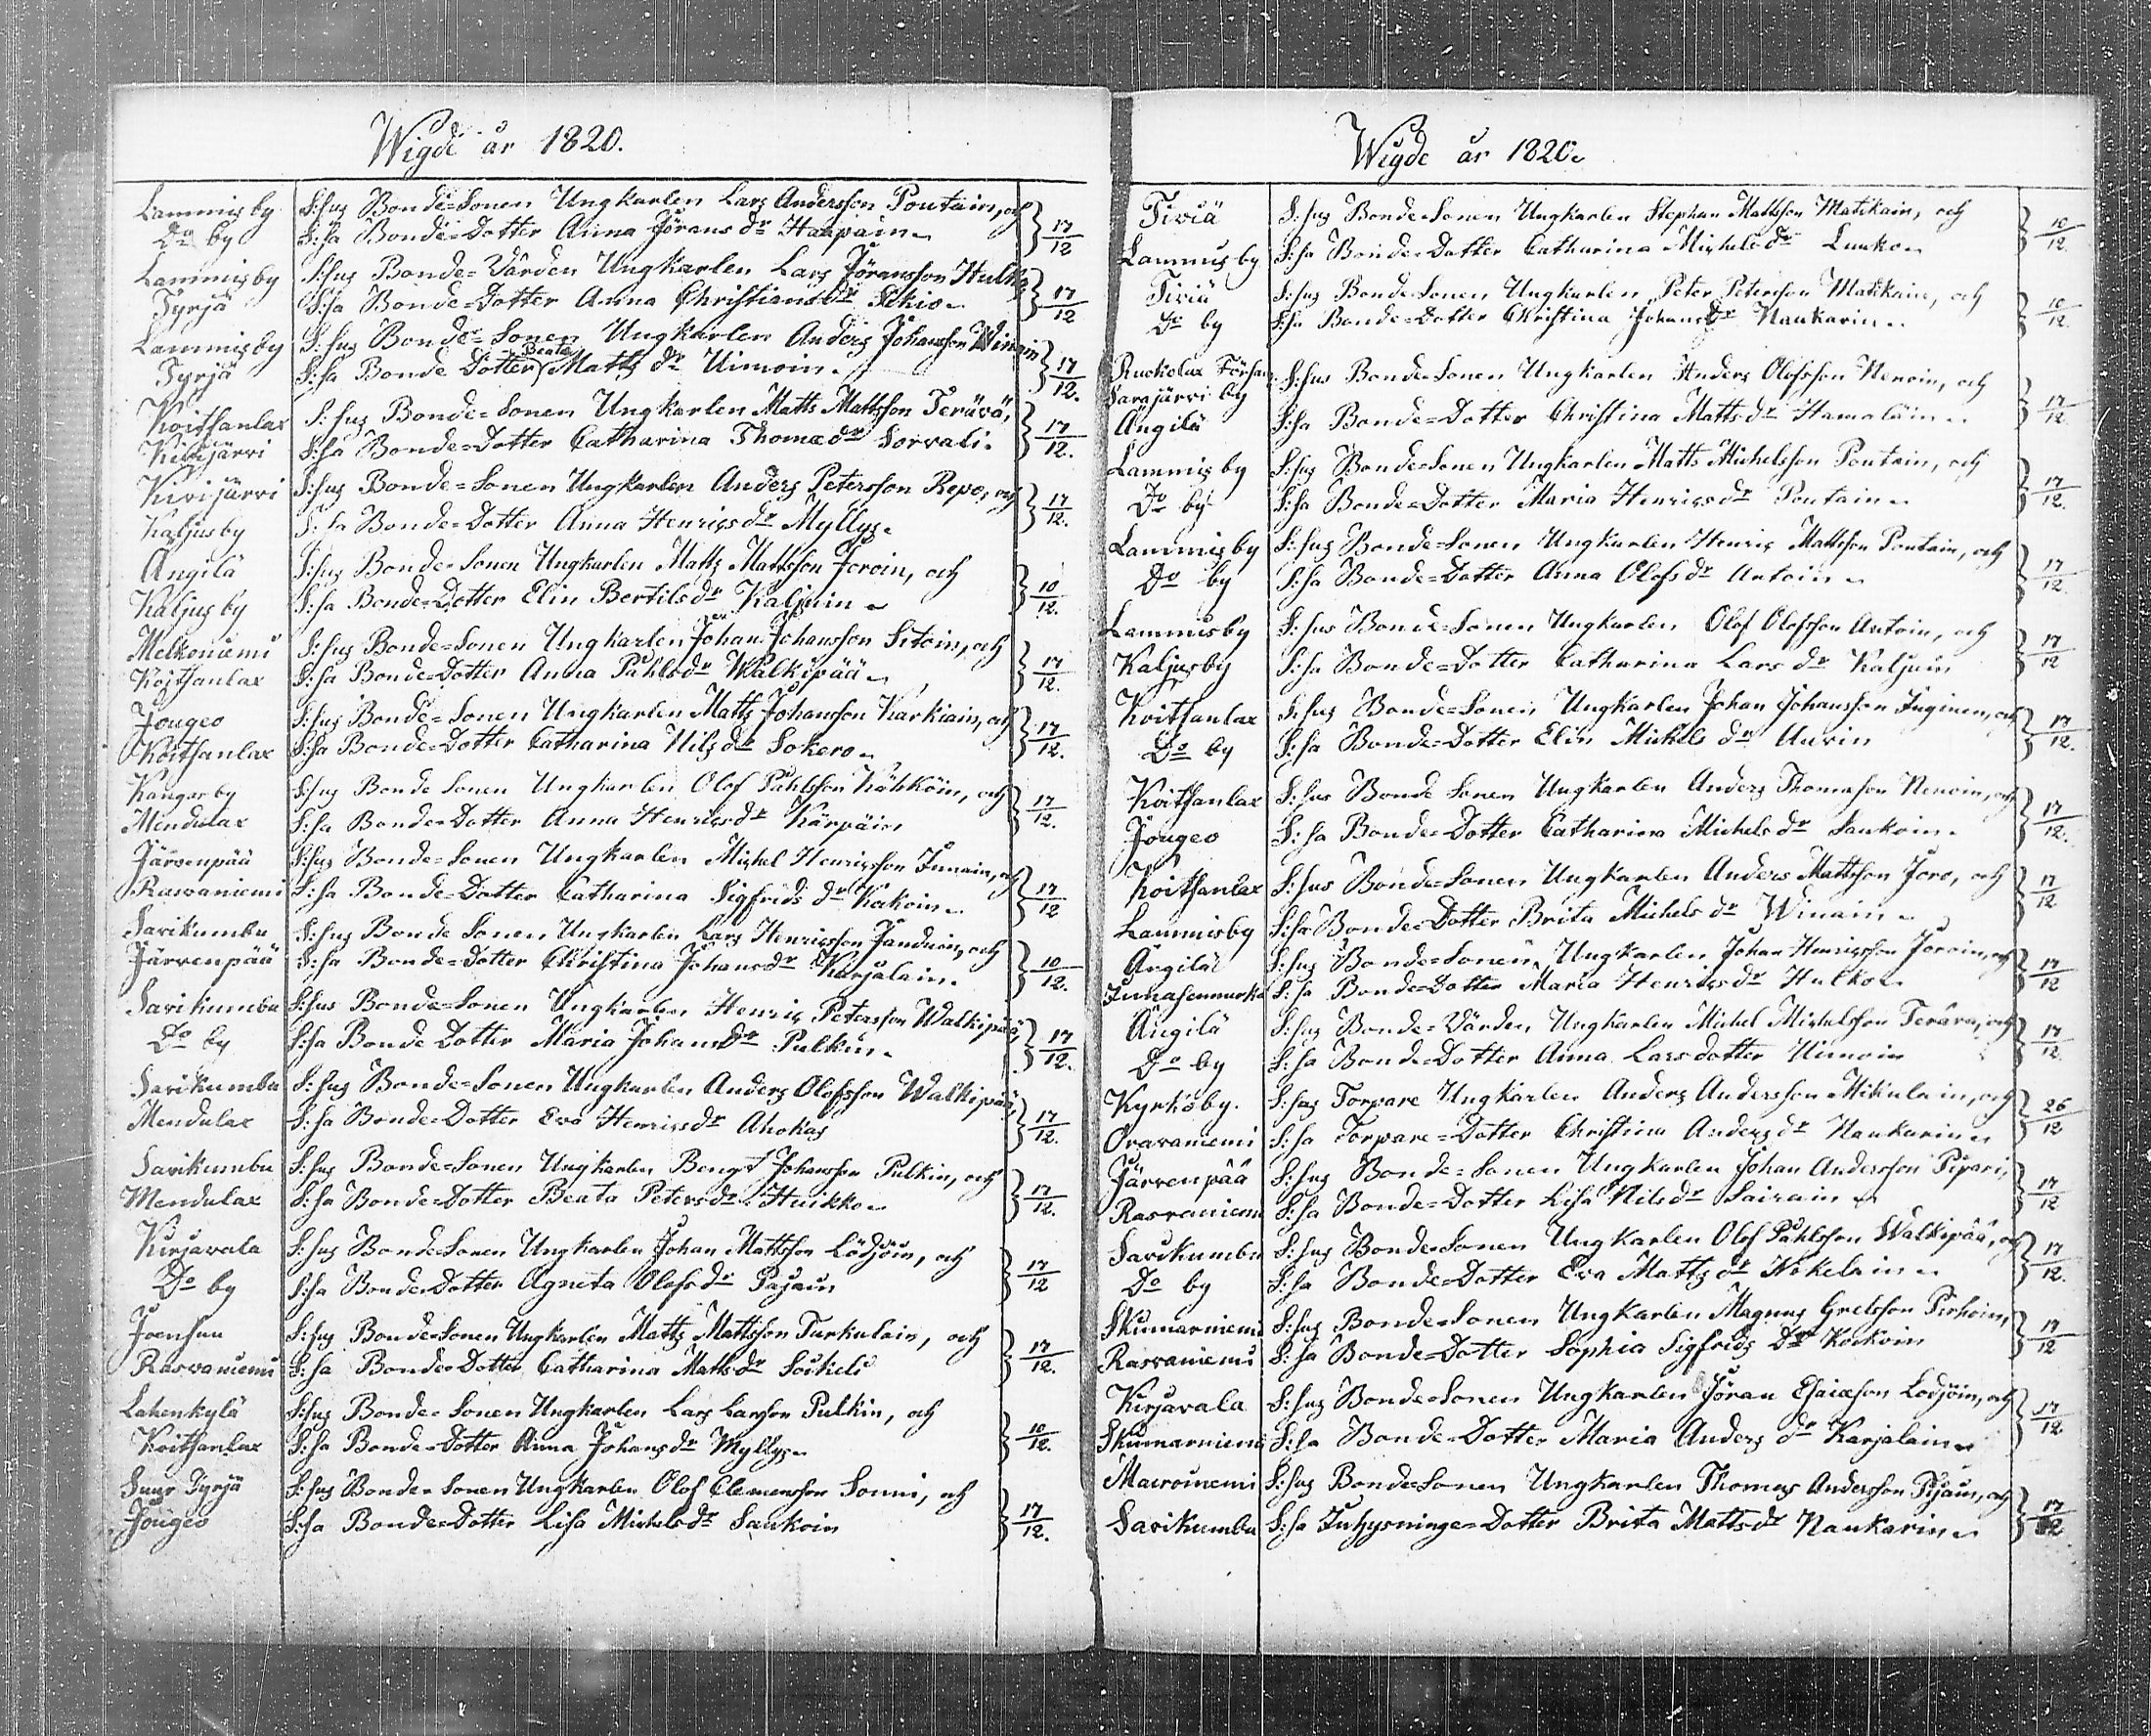 Wigde år 1820.
Lammis by S:hus Bonde-Sonen Ungkarlen Lars Andersson Poutain, och
Do by S:ha Bonde-Dotter Anna Jörans dr Haapain 17/12
Lammis by S:hus Bonde-Värden Ungkarlen Lars Jöransson Hulko
Tyrjä S:ha Bonde-Dotter Anna Christians dr 17/12
Lammis by S:hus Bonde-Sonen Ungkarlen Anders Johansson
Tyrjä S:ha Bonde Dotter Beata Matts dr Uimoin. 17/12.
Koitsanlax S:hus Bonde-Sonen Ungkarlen Matts Mattsson Terävä,
Kivijärvi S:ha Bonde-Dotter Catharina Thomæ dr Sorvali. 17/12.
Kivijärvi S:hus Bonde-Sonen Ungkarlen Anders Petersson Repo, och
Kaljus by S:ha Bonde-Dotter Anna Henrics dr Myllys. 17/12.
Angilä S:hus Bonde-Sonen Ungkarlen Matts Mattsson Joroin, och
Kaljus by S:ha Bonde-Dotter Elin Bertils dr Kaljuin 10/12.
Melkoniemi S:hus Bonde-Sonen Ungkarlen Johan Johansson Sitoin, och
Koitsanlax S:ha Bonde-Dotter Anna Påhls dr Walkipää 17/12.
Jougeo S:hus Bonde-Sonen Ungkarlen Matts Johansson Karkiain, och
Koitsanlax S:ha Bonde-Dotter Catharina Nils dr Sokero 17/12.
Kangas by S:hus Bonde Sonen Ungkarlen Olof Påhlsson Kähköin, och
Mendulax S:ha Bonde-Dotter Anna Henrics dr Kärpäin 17/12.
Järvenpää S:hus Bonde-Sonen Ungkarlen Michel Henricsson Immain, och
Rasvaniemi S:ha Bonde-Dotter Catharina Sigfrids dr Kokoin 17/12
Sarikumbu S:hus Bonde Sonen Ungkarlen Lars Henricsson Janduin, och
Järvenpää S:ha Bonde-Dotter Christina Johans dr Karjalain. 10/12.
Sarikumbu S:hus Bonde-Sonen Ungkarlen Henric Petersson Walkipää,
Do by S:ha Bonde Dotter Maria Johans Dr Pulkin. 17/12.
Sarikumbu S:hus Bonde-Sonen Ungkarlen Anders Olofsson Walkipää,
Mendulax S:ha Bonde-Dotter Eva Henrics dr Ahokas 17/12.
Sarikumbu S:hus Bonde-Sonen Ungkarlen Bengt Johansson Pulkin, och
Mendulax S:ha Bonde-Dotter Beata Peters dr Huikko 17/12.
Kirjavala S:hus Bonde-Sonen Ungkarlen Johan Mattsson Lödjöin, och
Do by S:ha Bonde-Dotter Agneta Olofs dr Pajain 17/12
Joensuu S:hus Bonde-Sonen Ungkarlen Matts Mattsson Turkulain, och
Rasvaniemi S:ha Bonde-Dotter Catharina Matts dr Soikeli 17/12.
Lahenkylä S:hus Bonde-Sonen Ungkarlen Lars Larsson Pulkin, och
Koitsanlax S:ha Bonde-Dotter Anna Johans dr Myllys 10/12.
Suur Tyrjä S:hus Bonde-Sonen Ungkarlen Olof Clemensson Sonni, och
Jougeo S:ha Bonde-Dotter Lisa Michels dr Saukoin 17/12.
Wigde år 1820
Tiviä S:hus Bonde-Sonen Ungkarlen Stephan Mattsson Matikain, och
Lammus by S:ha Bonde-Dotter Catharina Michels dr Luuko 10/12.
Tiviä S:hus Bonde-Sonen Ungkarlen Peter Petersson Matikain, och
Do by S:ha Bonde-Dotter Christina Johans Dr Naukarin 10/12.
Ruokolax Församl. S:hus Bonde-Sonen Ungkarlen Anders Olofsson Neroin, och
Sarajärvi by
Angilä S:ha Bonde-Dotter Christina Matts dr Hamaläin 17/12.
Lammis by S:hus Bonde-Sonen Ungkarlen Matts Michelsson Poutain, och
Do by S:ha Bonde-Dotter Maria Henrics dr Poutain 17/12.
Lammis by S:hus Bonde-Sonen Ungkarlen Henric Mattsson Poutain, och
Do by S:ha Bonde-Dotter Anna Olofs dr Antoin 17/12.
Lammus by S:hus Bonde-Sonen Ungkarlen Olof Olofsson Antoin, och
Kaljus by S:ha Bonde-Dotter Catharina Lars dr Kaljuin 17/12
Koitsanlax S:hus Bonde-Sonen Ungkarlen Johan Johansson Inginen, och
Do by S:ha Bonde-Dotter Elin Michels dr Auvin 17/12.
Koitsanlax S:hus Bonde Sonen Ungkarlen Anders Thomasson Neroin, och
Jougeo S:ha Bonde-Dotter Catharina Michels dr Saukoin. 17/12.
Koitsanlax S:hus Bonde-Sonen Ungkarlen Anders Mattsson Joro, och
Lammisby S:ha Bonde-Dotter Brita Michels dr Winain 17/12
Angilä S:hus Bonde-Sonen Ungkarlen Johan Henricsson Joroin, och
S:ha Bonde-Dotter Maria Henrics dr Hulko 17/12
Angilä S:hus Bonde-Värden Ungkarlen Michel Michelsson Terävä, och
Do by S:ha Bonde-Dotter Anna Larsdotter Uimoin 17/12.
Kyrkoby. S:hus Torpare Ungkarlen Anders Andersson Mikulain, och
Oravaniemi S:ha Torpare-Dotter Christina Anders dr Naukarin 26/12
Järvenpää S:hus Bonde-Sonen Ungkarlen Johan Andersson Pipari,
Rasvaniemi S:ha Bonde-Dotter Lisa Nils dr Sairain 17/12
Sarikumbu S:hus Bonde-Sonen Ungkarlen Olof Påhlsson Walkipää, och
Do by S:ha Bonde-Dotter Eva Matts dr Nokelain 17/12.
Skumarniemi S:hus Bonde-Sonen Ungkarlen Magnus Grelsson Pirhoin,
Rasvaniemi S:ha Bonde-Dotter Sophia Sigfrids Dr Kockoin 17/12
Kirjavala S:hus Bonde-Sonen Ungkarlen Jöran Esaiæson Lodjöin, och
Skumarniemi S:ha Bonde-Dotter Maria Anders dr Karjalain 17/12
S:hus Bonde-Sonen Ungkarlen Thomas Andersson Pijain, och
Sarikumbu S:ha Inhysninge-Dotter Brita Matts dr Naukarin 17/12